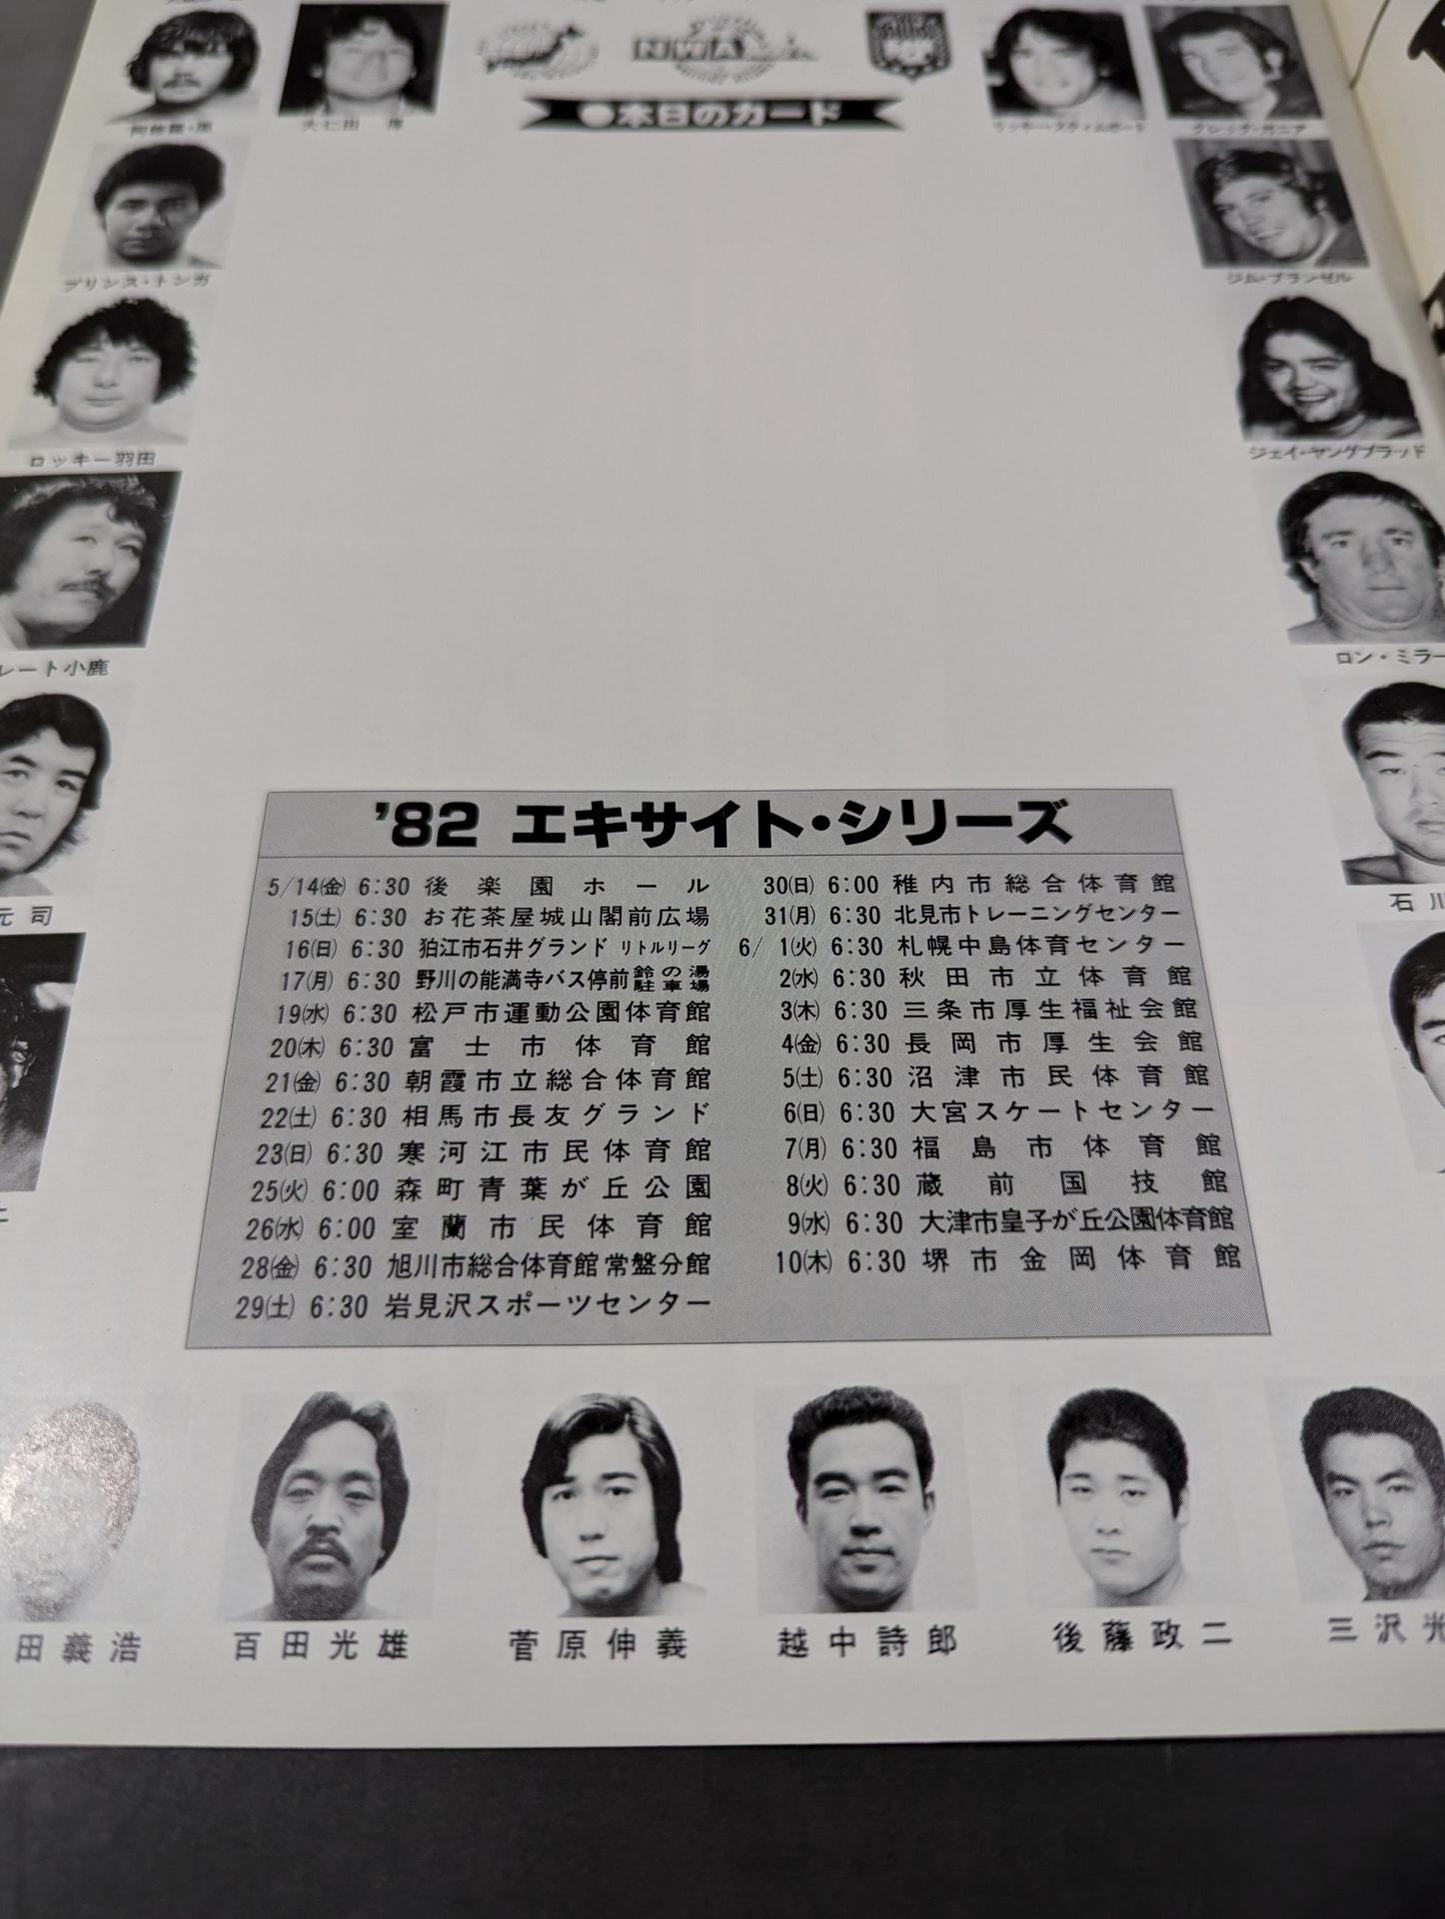 NWA
●本日のカード
阿修羅・原
大仁田 厚
リッキー・スティムボート
グレッグ・ガニア
プリンス・トンガ
ジム・ブランゼル
ロッキー羽田
ジェイ・ヤングブラッド
レート小鹿
ロン・ミラー
元司
石川
'82 エキサイト・シリーズ
5/14(金) 6:30 後楽園ホール
15(土) 6:30 お花茶屋城山閣前広場
16(日) 6:30 狛江市石井グランド リトルリーグ
17(月) 6:30 野川の能満寺バス停前鈴の湯駐車場
19(水) 6:30 松戸市運動公園体育館
20(木) 6:30 富士市体育館
21(金) 6:30 朝霞市立総合体育館
22(土) 6:30 相馬市長友グランド
23(日) 6:30 寒河江市民体育館
25(火) 6:00 森町青葉が丘公園
26(水) 6:00 室蘭市民体育館
28(金) 6:30 旭川市総合体育館常盤分館
29(土) 6:30 岩見沢スポーツセンター
30(日) 6:00 稚内市総合体育館
31(月) 6:30 北見市トレーニングセンター
6/1(火) 6:30 札幌中島体育センター
2(水) 6:30 秋田市立体育館
3(木) 6:30 三条市厚生福祉会館
4(金) 6:30 長岡市厚生会館
5(土) 6:30 沼津市民体育館
6(日) 6:30 大宮スケートセンター
7(月) 6:30 福島市体育館
8(火) 6:30 蔵前国技館
9(水) 6:30 大津市皇子が丘公園体育館
10(木) 6:30 堺市金岡体育館
田義浩
百田光雄
菅原伸義
越中詩郎
後藤政二
三沢光